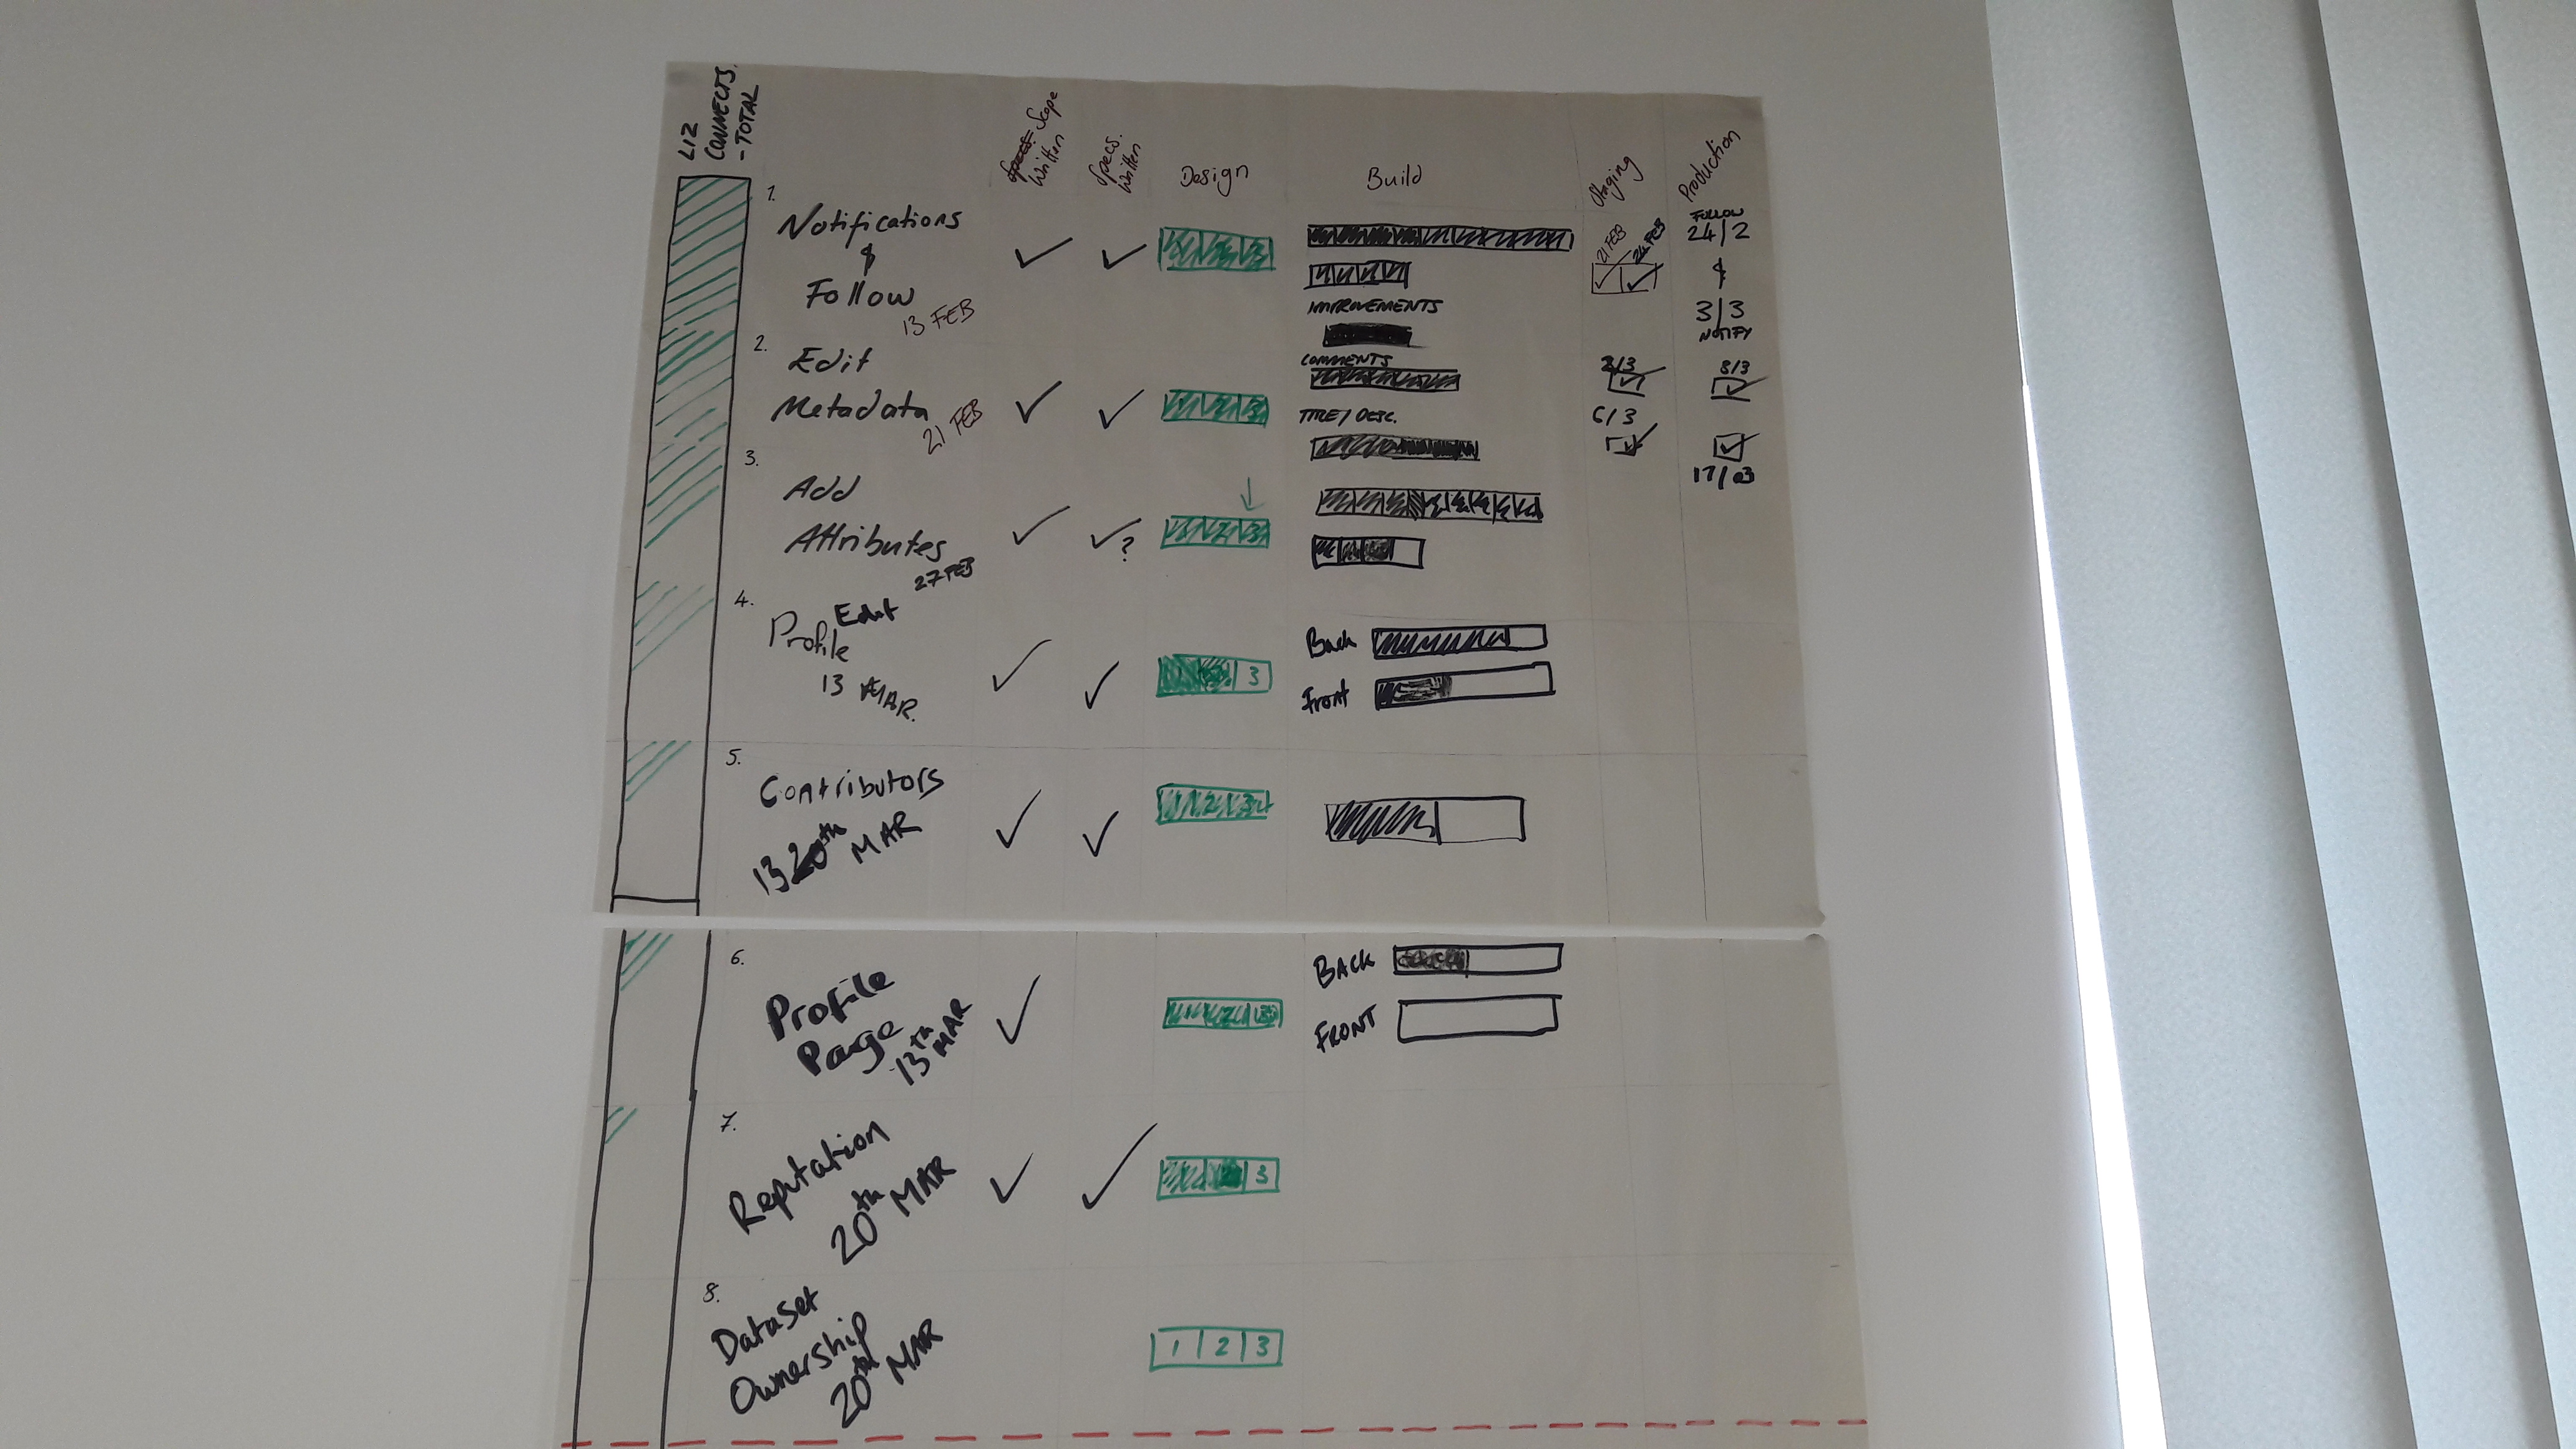 LIZ
CONNECTS.
- TOTAL
Specs. Scope
Written
Specs.
Written
Design
Build
Staging
Production
1.
Notifications
&
Follow
13 FEB
IMPROVEMENTS
21 FEB
24 FEB
FOLLOW
24/2
&
3/3
NOTIFY
2.
Edit
Metadata
21 FEB
3
COMMENTS
TITLE / DESC.
/3
6/3
8/3
17/03
3.
Add
Attributes
27 FEB
?
3
4.
Edit
Profile
13 MAR.
3
Back
Front
5.
Contributors
13 20th MAR
1 2 3
6.
Profile
Page
13th MAR
2
BACK
FRONT
7.
Reputation
20th MAR
3
8.
Dataset
Ownership
20th MAR
1 2 3